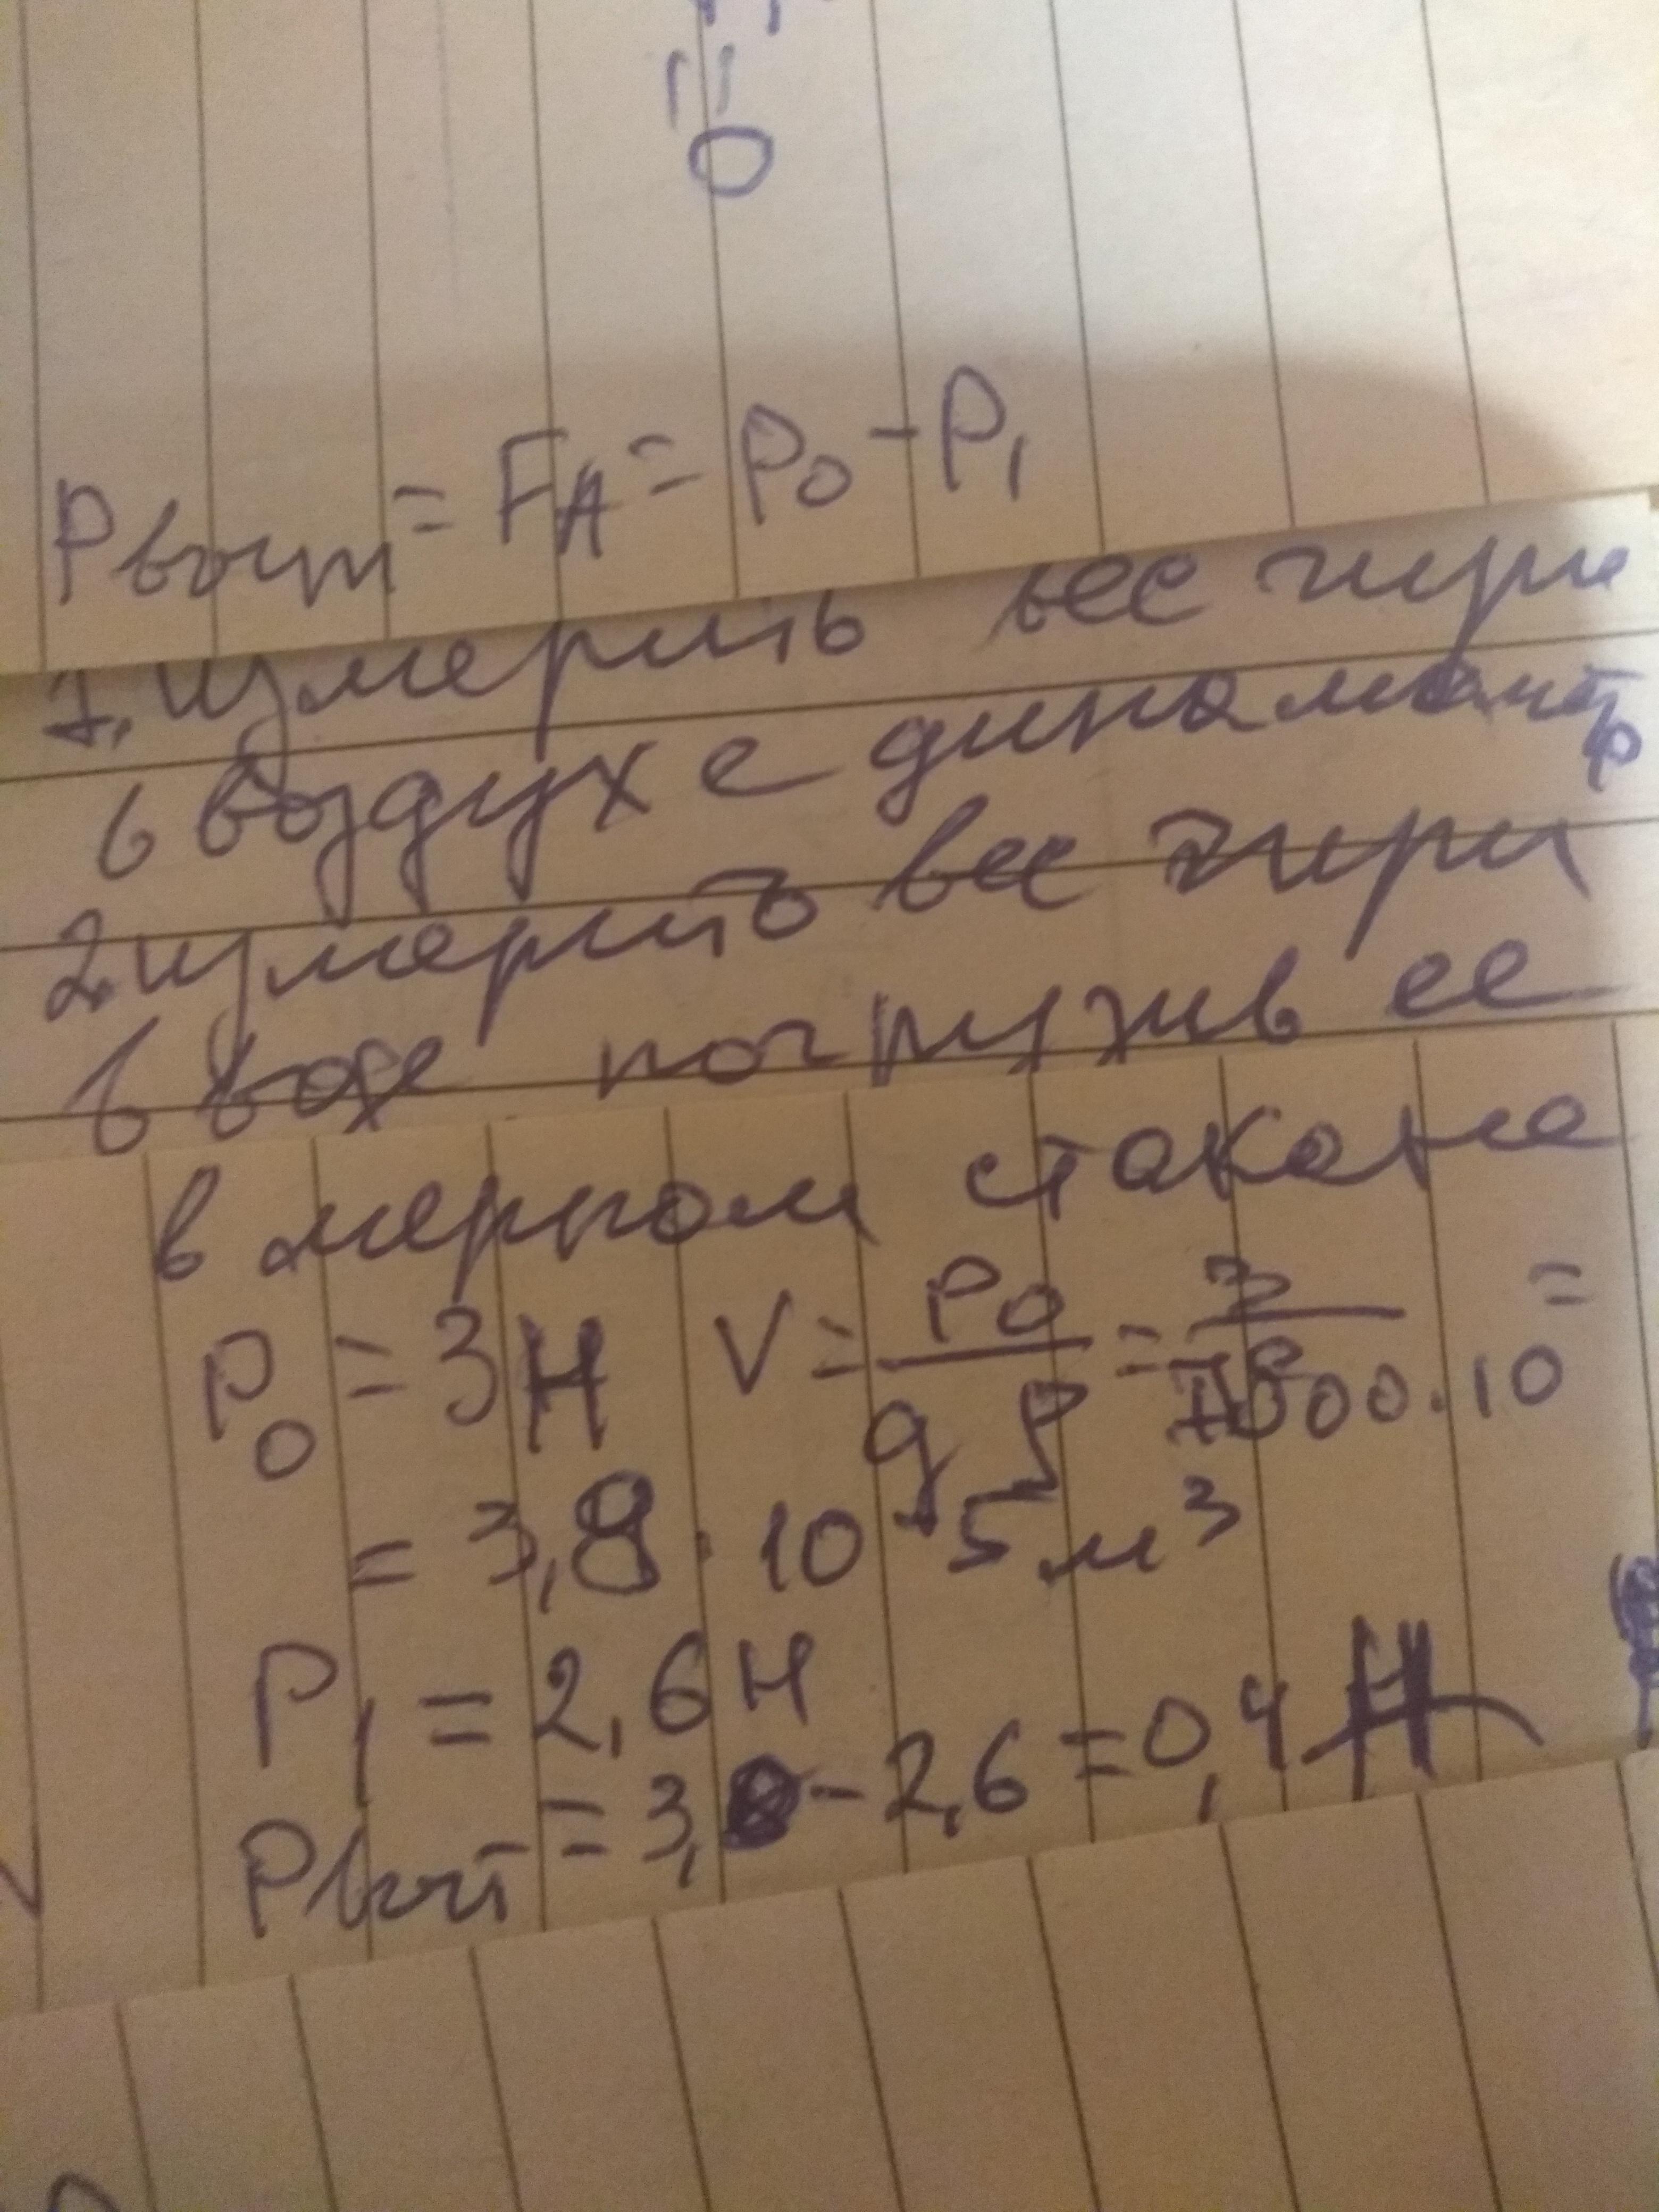 0
Pвыт = FA = P0 - P1
1. измерить вес гири
в воздухе динамометр
2. измерить вес гири
в воде погрузив ее
в мерном стакане
P0 = 3Н V = P0 / gρ = 3 / 7800·10 =
= 3,8·10⁻⁵ м³
P1 = 2,6 Н
Pвыт = 3,0 - 2,6 = 0,4 Н